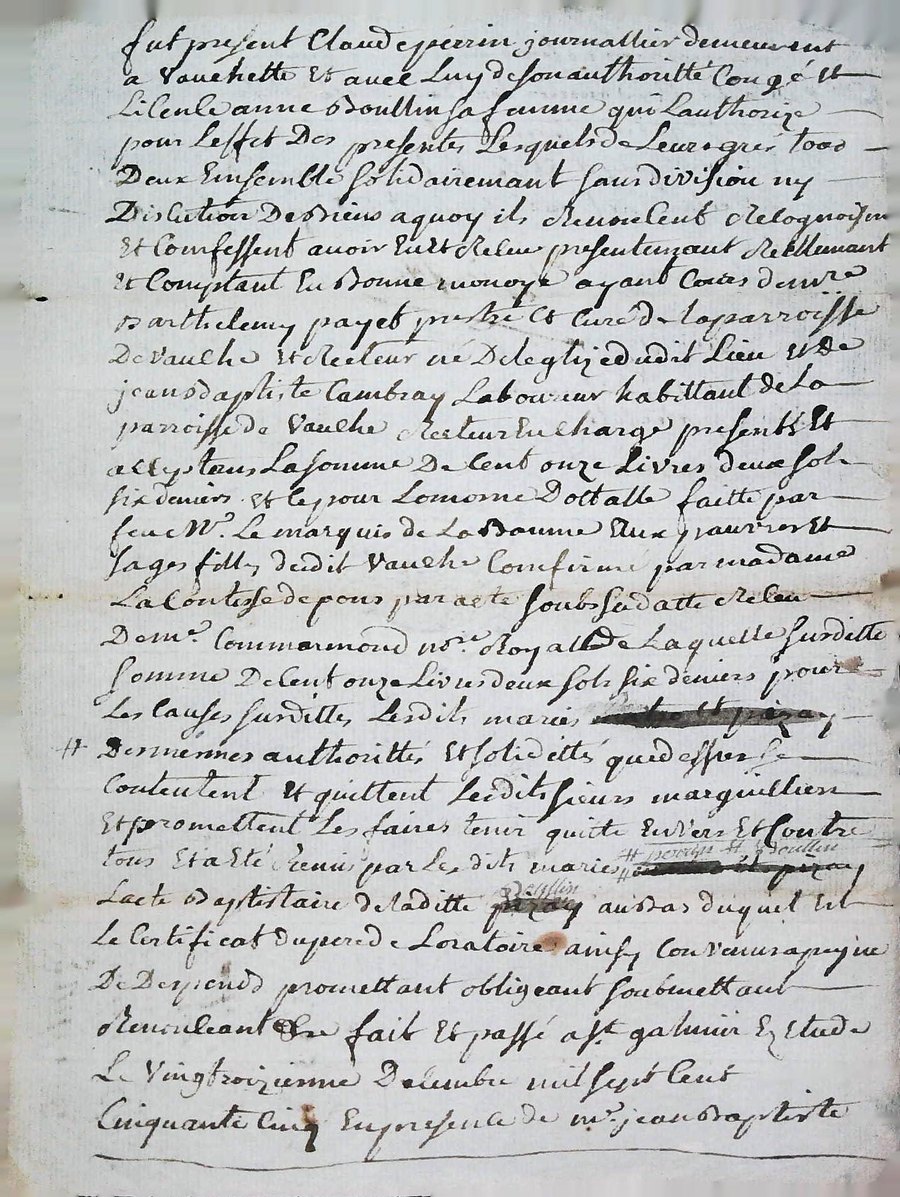 fut present Claude perrin journallier demeurent
a Vauchette Et avec Luy de son authoritté Congé Et
Licence anne Boullin sa femme qui Lauthorize
pour Leffet Des presentes Lesquels de Leurs grés tous
Deux Ensemble solidairemant sans division ny
Discution De Biens a quoy ils Renoncent Recognoissent
Et Comfessent avoir Eu Et Receu presentemant Reellemant
Et Comptant En Bonne monoye ayant Cours de mre
Barthelemy payet prestre Et Curé de la parroisse
De Vauche Et Recteur né De leglize dudit Lieu Et de
jean Baptiste Cambray Laboureur habittant de La
parroisse de Vauche Recteur En Charge presents Et
acceptans La somme De Cent onze Livres deux sols
six deniers Et ce pour Lomone Dottalle faitte par
feu Mr. Le marquis de La Baume Aux pauvres Et
sages filles dudit Vauche Comfirmé par madame
La Contesse de pons par acte soubs sa datte Receu
De me Commarmond nore Royal De Laquelle susditte
somme De Cent onze Livres deux sols six deniers pour
Les Causes susdittes Lesdits mariés
# Des mesmes authorittés Et solidittés que dessus se
Contentent Et quittent Lesdits sieurs marguilliers
Et promettent Les faires tenir quitte Envers Et Contre
tous Et a Eté Remis par Les dits mariés # perrin # Boullin
Lacte Baptistaire de laditte Boullin au Bas duquel Est
Le Certificat du pere de Loratoire ainsy Convenu a peyne
De Despends promettant obligeant soubmettant
Renonceant fait Et passé a St galmier Ezetude
Le Vingtroizienne Decembre mil sept Cent
Cinquante Cinq En presence de mr. jean Baptiste